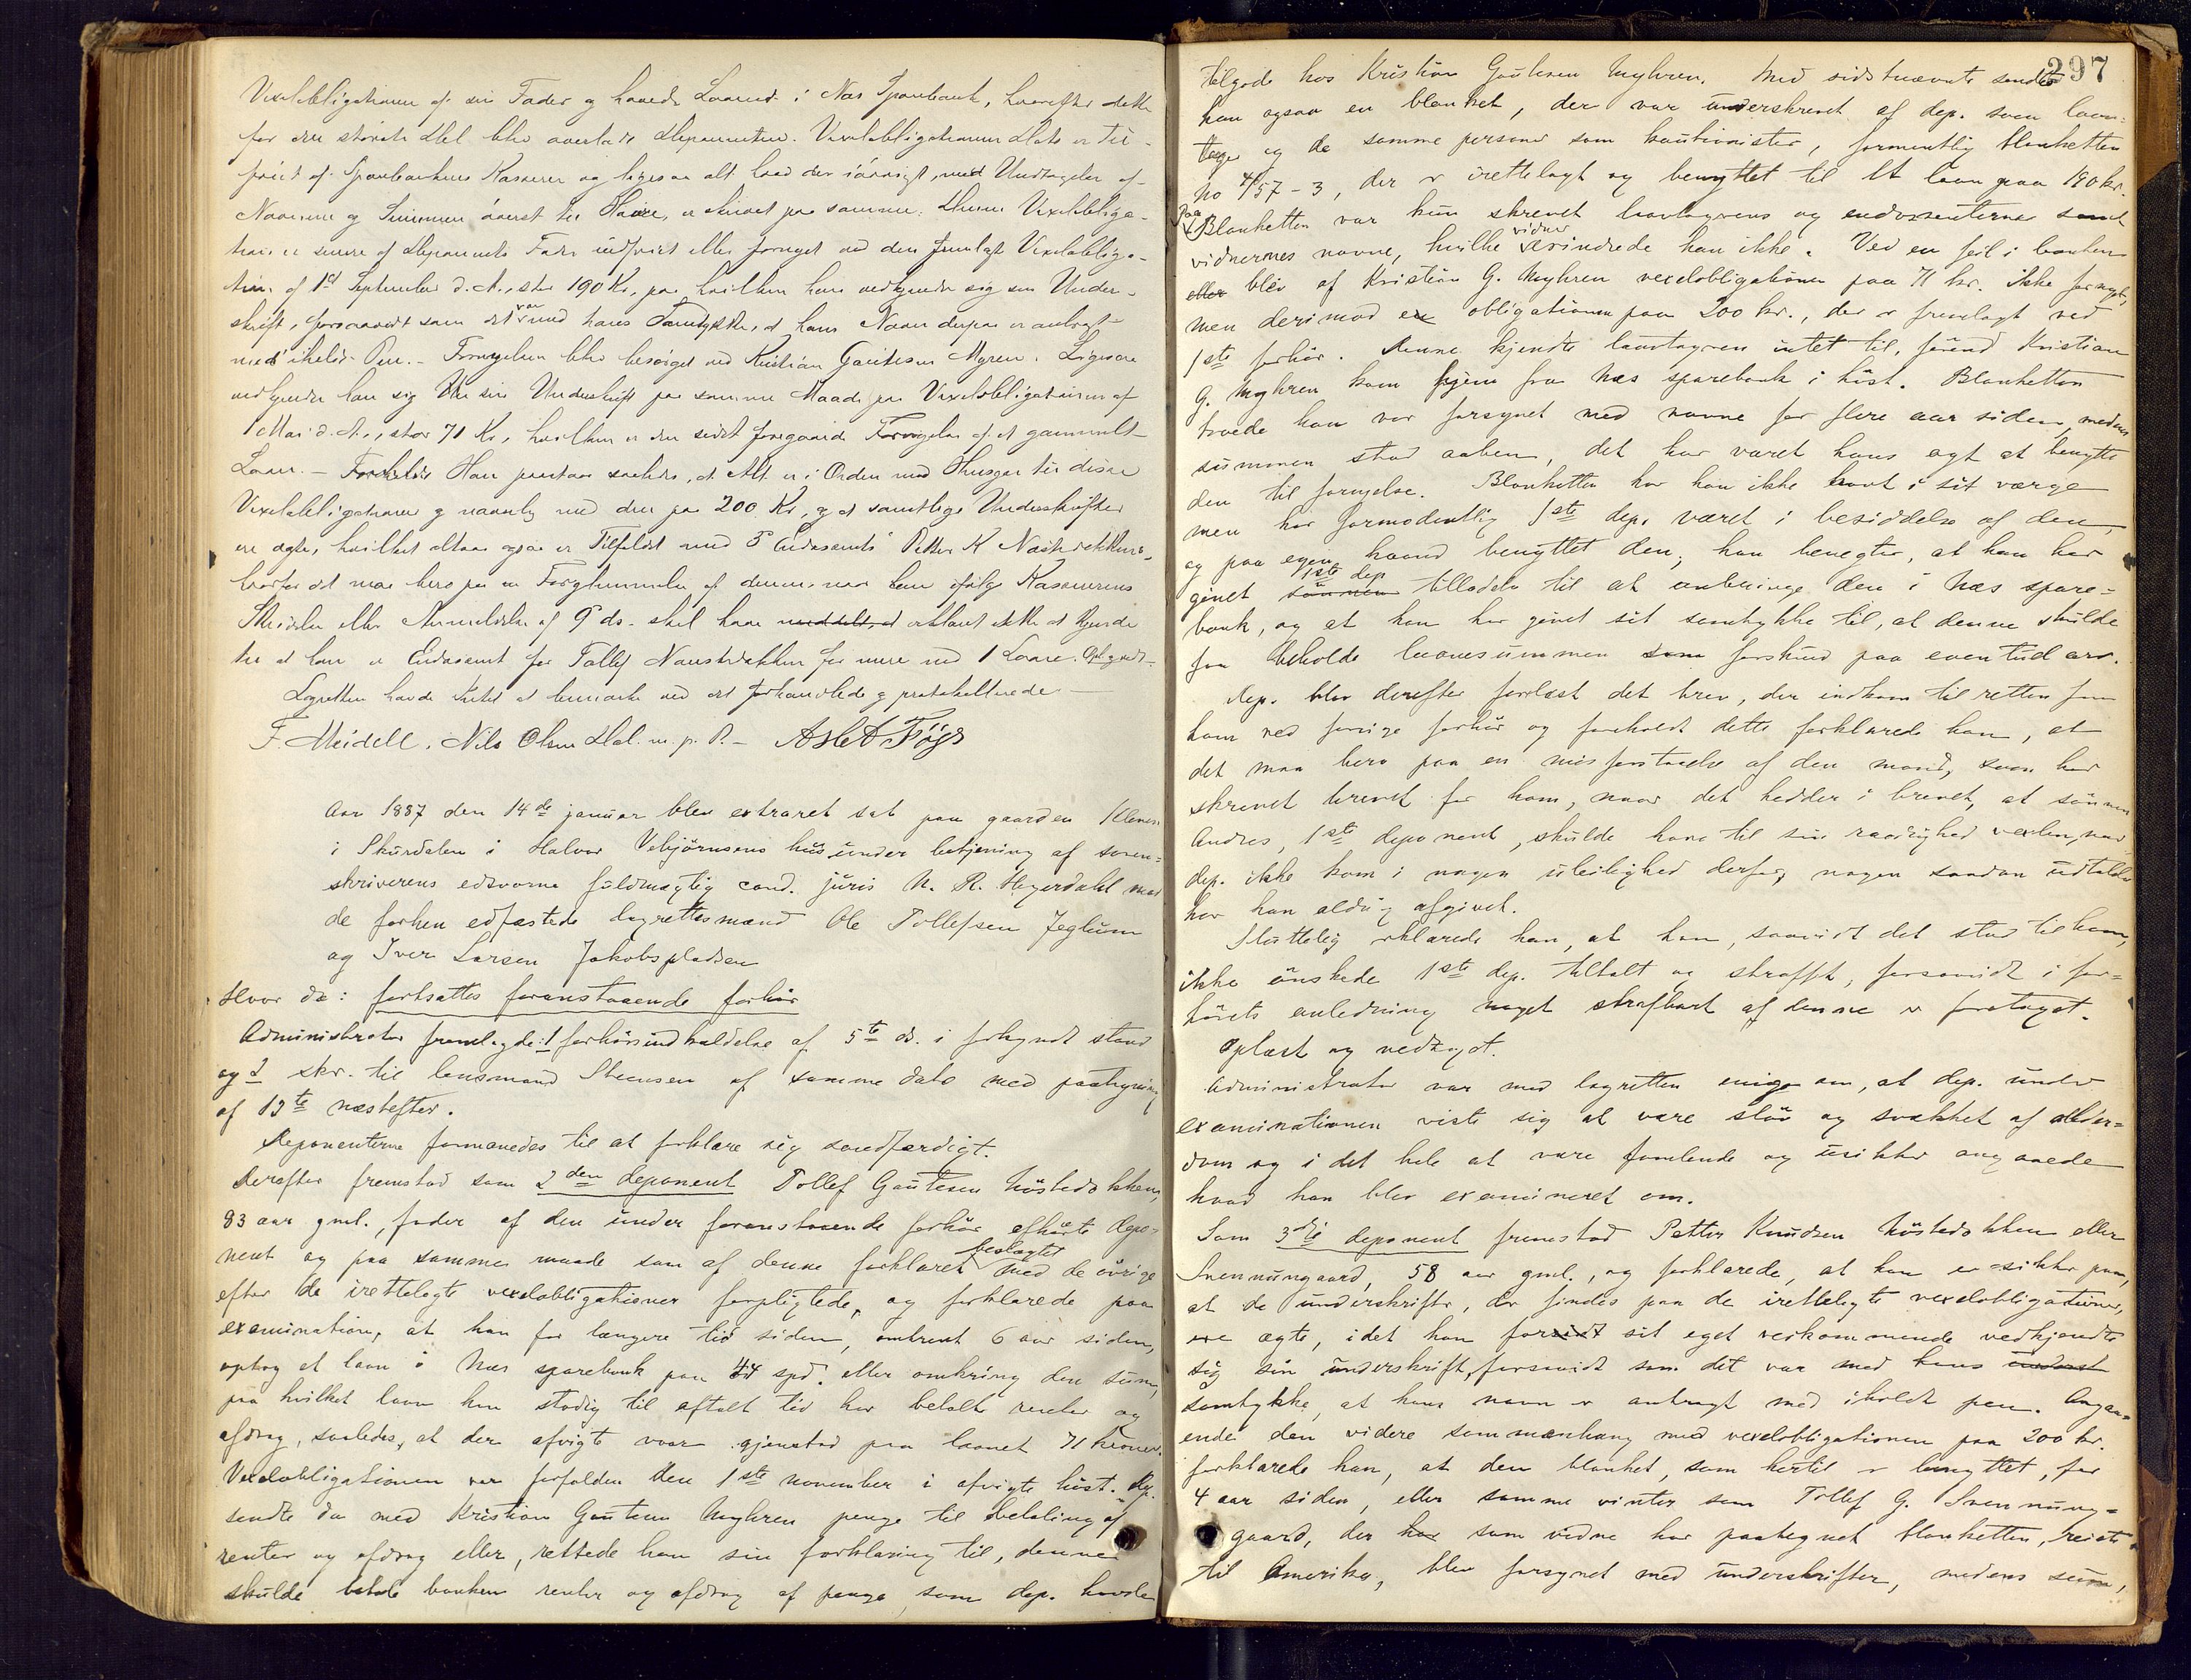 Vixelobligationen af sin Fader og hævede Laanet i Næs Sparebank, hvorefter dette
for den største Del blev overladt Deponenten. Vexelobligationens Dato er til-
føiet af Sparebankens Kasserer og ligesaa alt hvad der iøvrigt, med Undtagelse af
Navnene og Summen øverst til Høire, er skrevet paa samme. Denne Vexelobliga-
tion er senere af Deponentens Fader indfriet eller fornyet ved den fremlagte Vexelobliga-
tion af 1st September d. A., stor 190 Kr., paa hvilken han vedkjender sig sin Under-
skrift, forsaavidt som det var med hans Samtykke, at hans Navn derpaa er anbragt
med iholdt Pen. - Fornyelsen blev besørget ved Kristian Gautesen Myren. Ligesaa
vedkjender han sig sin Underskrift paa samme Maade paa Vexelobligationen af
1 Mai d. A., stor 71 Kr., hvilken er den sidst foregaaede Fornyelse af et gammelt
Laan. - Han paastaar saaledes, at Alt er i Orden med Hensyn til disse
Vexelobligationer og navnlig med den paa 200 Kr., og at samtlige Underskrifter
ere ægte, hvilket altsaa ogsaa er Tilfældet med Endossents Petter K
hvorfor det maa bero paa en Forglemmelse af denne, naar han ifølge Kassererens
Skrivelse eller Anmeldelse af 9 ds. skal have meddelt, at erklæret ikke at kjende
til at han er Endossent for Tollef for mere end 1 Laan.
Lagretten havde Intet at bemærke ved det forhandlede og protokollerede
F. Meidell. Nils Olsen Dal. m. p. P. -
Aar 1887 den 14de januar blev extraret sat paa gaarden
i Skurdalen i Halvor Vebjörnsens hus under betjening af soren-
skriverens edsvorne fuldmægtig cand. juris N. R. Heyerdahl med
de forhen edfæstede lagrettesmænd Ole Tollefsen Jeglum
og Iver Larsen Jakobspladsen
Hvor da: fortsattes foranstaaende forhör
Administrator fremlagde: 1 forhörsindkaldelse af 5te ds. i forkyndt stand
og 2 skr. til lensmand Steensen af samme dato med paategning
af 12te næstefter.
Deponenterne formanedes til at forklare sig sandfærdigt.
Derefter fremstod som 2den deponent Tollef Gautesen
83 aar gml., fader af den under foranstaaende forhör afhörte depo-
nent og paa samme maade som af denne forklaret beslægtet med de övrige
efter de irettelagte vexelobligationer forpligtede, og forklarede paa
examination, at han for længere tid siden, omtrent 6 aar siden,
optog et laan i Næs sparebank paa 44 spd. eller omkring den sum,
paa hvilket laan han stadig til aftalt tid har betalt renter og
afdrag, saaledes, at der afvigte vaar gjenstod paa laanet 71 kroner.
Vexelobligationen var forfalden den 1ste november i afvigte höst. Dep.
sendte da med Kristian Gautesen Myhren penge til betaling af
renter og afdrag eller, rettede han sin forklaring til, denne
skulde betale banken renter og afdrag af penge, som dep. havde
297
tilgode hos Kristian Gautesen Myhren. Med sidstnævnte sendte
han ogsaa en blanket, der var underskrevet af dep. som laan-
tager og de samme personer som kautionister, formentlig blanketten
No 4/57-3, der er irettelagt og benyttet til et laan paa 190 kr.
Paa Blanketten var kun skrevet laantagerens og endossenternes samt
vidnernes navne, hvilke vidner erindrede han ikke. Ved en feil i banken
eller blev af Kristian G. Myhren vexelobligationen paa 71 kr. ikke fornyet,
men derimod en obligationen paa 200 kr., der er fremlagt ved
1ste forhör. Denne kjendte laantageren intet til, förend Kristian
G. Myhren kom hjem fra Næs sparebank i höst. Blanketten
troede han var forsynet med navne for flere aar siden, medens
summen stod aaben, det har været hans agt at benytte
den til fornyelse. Blanketten har han ikke havt i sit værge
men har formodentlig 1ste dep. været i besiddelse af den,
og paa egen haand benyttet den; han benegter, at han har
givet sönnen 1ste dep tilladelse til at anbringe den i Næs spare-
bank, og at han har givet sit samtykke til, at denne skulde
faa beholde laanesummen som forskud paa eventuel arv.
Dep. blev derefter forelæst det brev, der indkom til retten fra
ham ved forrige forhör og foreholdt dette forklarede han, at
det maa bero paa en misforstaaelse af den mand, som har
skrevet brevet for ham, naar det hedder i brevet, at sönnen
Andres, 1ste deponent, skulde have til sin raadighed vexlen, naar
dep. ikke kom i nogen uleilighed derfor, nogen saadan udtalelse
har han aldrig afgivet.
Sluttelig erklærede han, at han, saavidt det stod til ham,
ikke önskede 1ste dep. tiltalt og straffet, forsaavidt i for-
hörets anledning noget strafbart af denne er foretaget.
Oplæst og vedtaget.
Administrator var med lagretten enige om, at dep. under
examinationen viste sig at være slöv og svækket af alder-
dom og i det hele at være famlende og usikker angaaende
hvad han blev examineret om.
Som 3die deponent fremstod Petter Knudsen eller
Svennungaard, 58 aar gml., og forklarede, at han er sikker paa,
at de underskrifter, der findes paa de irettelagte vexelobligationer,
ere ægte, idet han forsaavidt sit eget vedkommende vedkjendte
sig sin underskrift, forsaavidt som det var med hans
samtykke, at hans navn er anbragt med iholdt pen. Angaa-
ende den videre sammenhæng med vexelobligationen paa 200 kr.
forklarede han, at den blanket, som hertil er benyttet, for
4 aar siden, eller samme vinter som Tollef G. Svennung-
gaard, der har som vidne har paategnet blanketten, reiste
til Amerika, blev forsynet med underskrifter, medens sum,